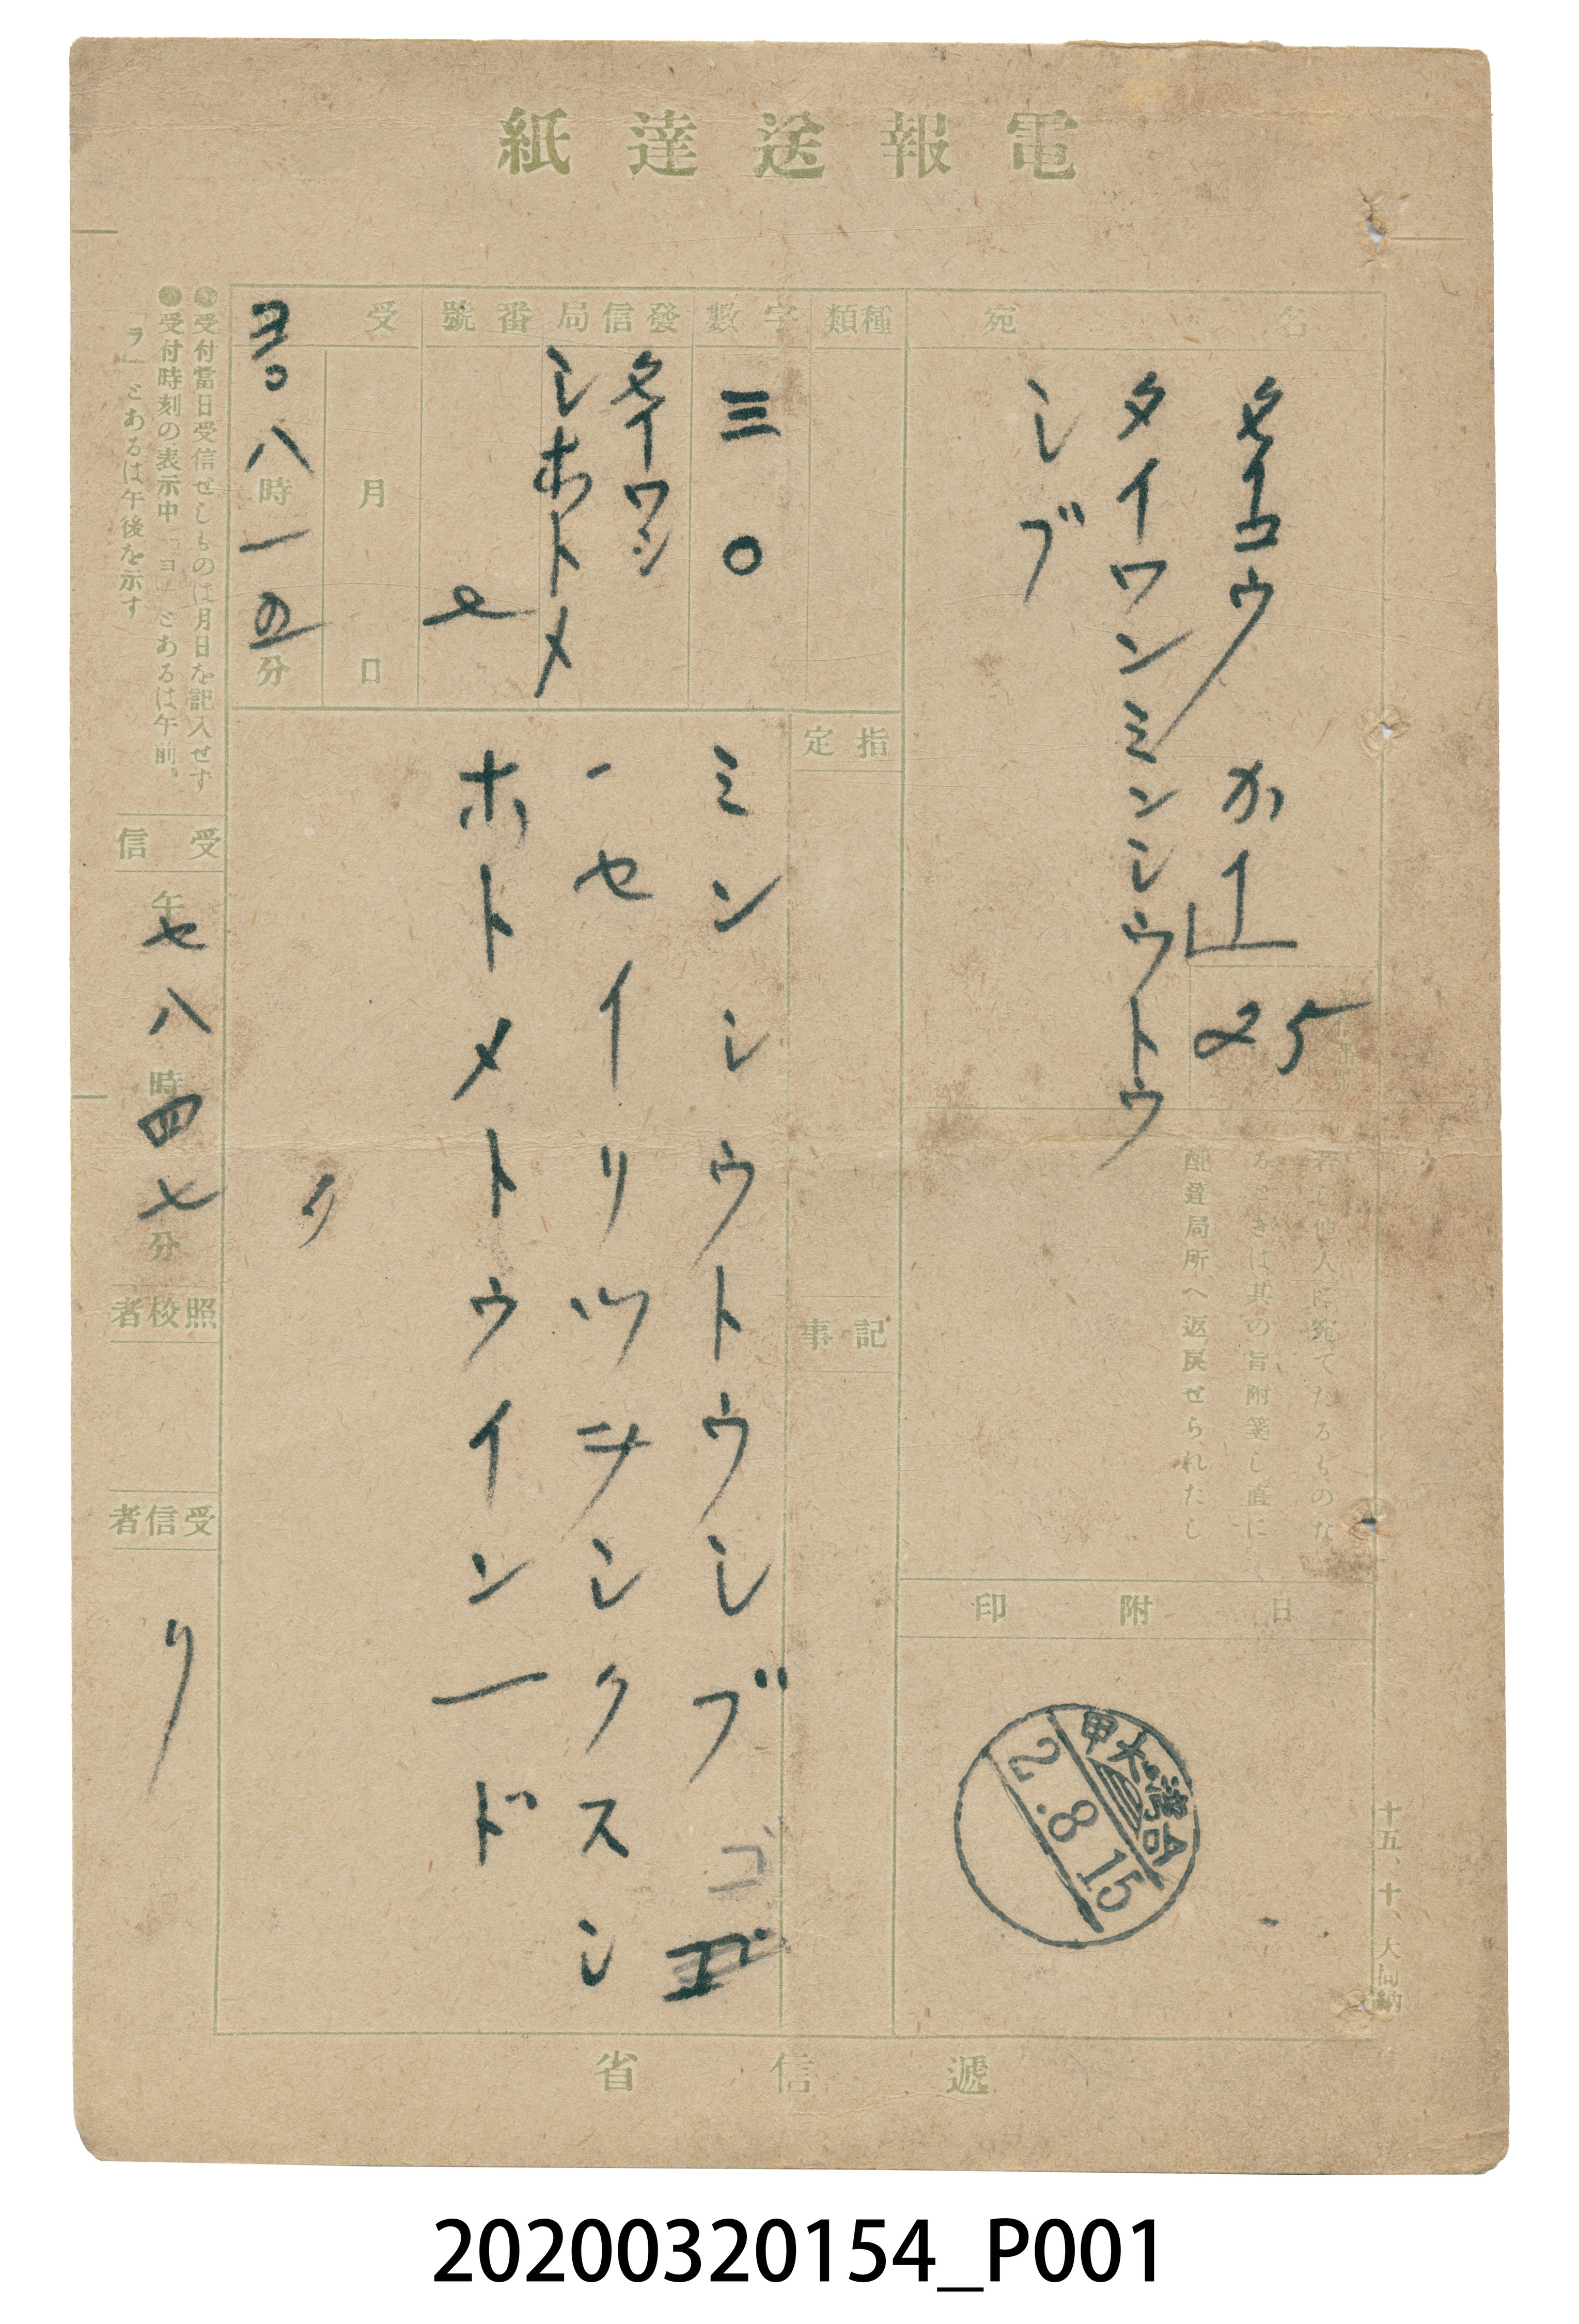 電報送達紙
宛名
種類
字數
發信局
番號
受
月
口
時
分
タイコウ カイ山
25
タイワンミンシウトウ
シブ
三〇
タイワン
シホトメ
七
ヨコ
八
一五
若し他人に宛てたるものな
るときは其の旨附箋し直に
配達局所へ返戻せられたし
指定
記事
ミンシウトウシブゴ
一セイリツヲシクスシ
ホトメトウイン一ド
リ
日附印
臺灣大甲
2.8.15
●受付當日受信せしものは月日を記入せず
●受付時刻の表示中「ヨ」とあるは午前、
「ヲ」とあるは午後を示す
受信
午
七八時四七分
照校者
受信者
リ
十五、十、大
遞信省
20200320154_P001